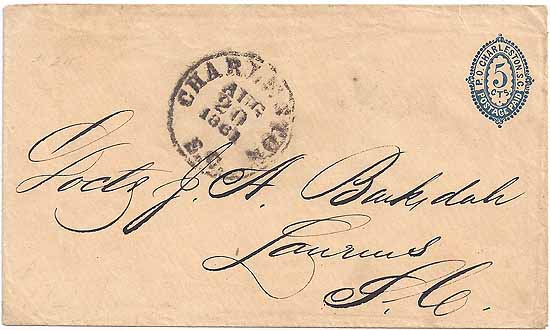 P.O. CHARLESTON, S.C.
5
CTS.
POSTAGE PAID
CHARLESTON
AUG
20
1861
J. A. Barksdale
Laurens
S. C.